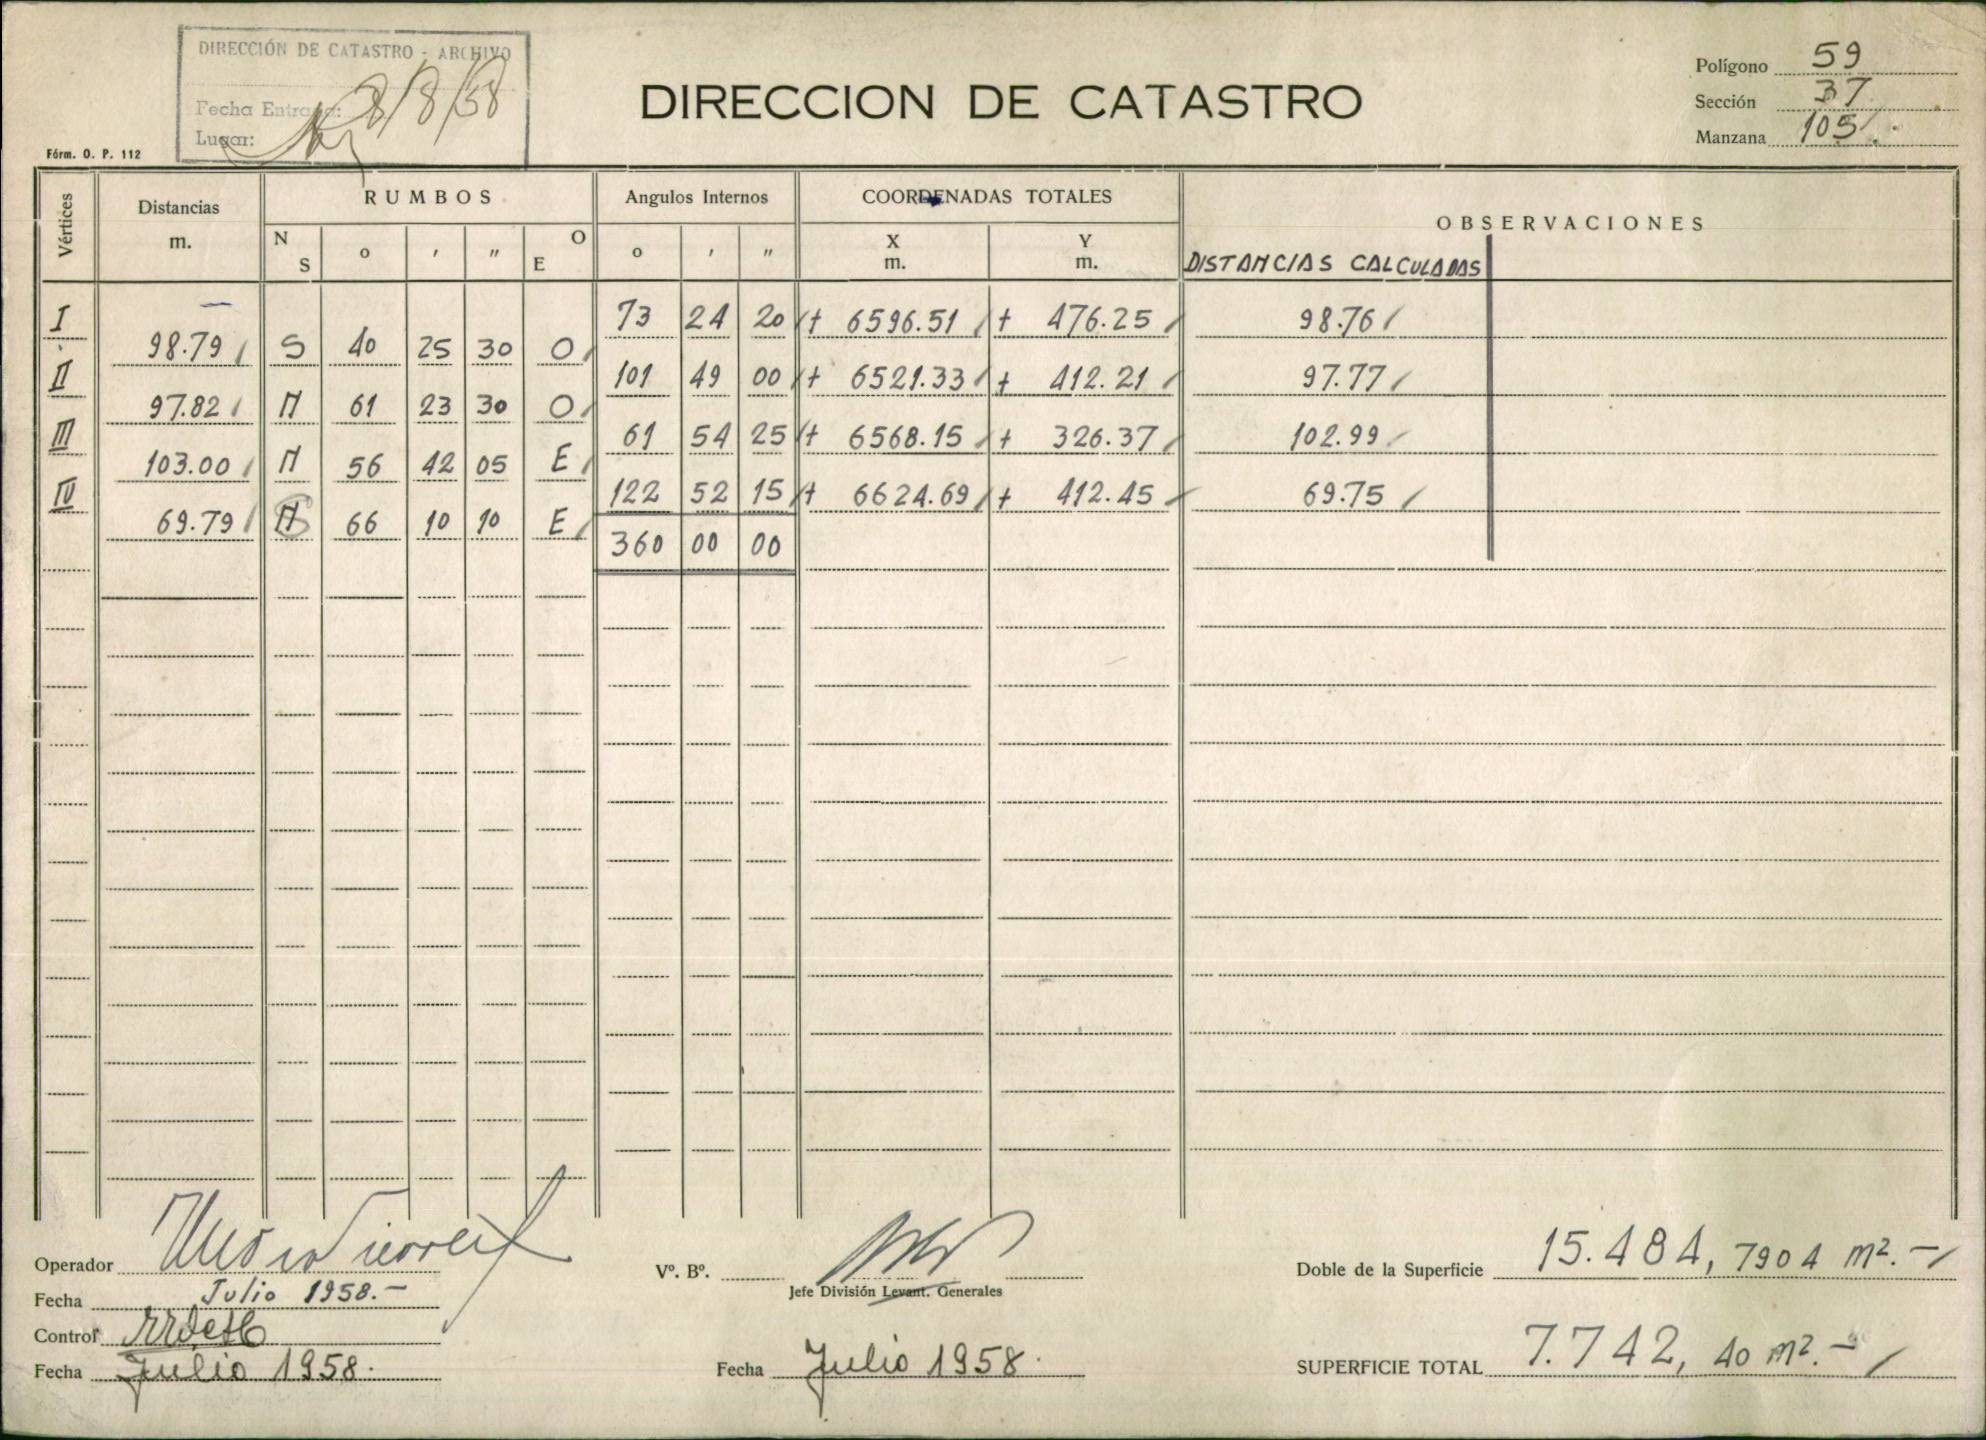 DIRECCIÓN DE CATASTRO - ARCHIVO
Fecha Entrada: 8/8/58
Lugar:
Fórm. O. P. 112
DIRECCION DE CATASTRO
Polígono 59
Sección 37
Manzana 105
Vértices Distancias m. RUMBOS Angulos Internos COORDENADAS TOTALES OBSERVACIONES
N S o ' " O E o ' " X m. Y m. DISTANCIAS CALCULADAS
I 73 24 20 + 6596.51 + 476.25 98.76
98.79 S 40 25 30 O
II 101 49 00 + 6521.33 + 412.21 97.77
97.82 N 61 23 30 O
III 61 54 25 + 6568.15 + 326.37 102.99
103.00 N 56 42 05 E
IV 122 52 15 + 6624.69 + 412.45 69.75
69.79 S 66 10 10 E
360 00 00
Operador
Fecha Julio 1958.-
Control
Fecha Julio 1958.
Vº. Bº.
Jefe División Levant. Generales
Fecha Julio 1958.
Doble de la Superficie 15.484,7904 m².-
SUPERFICIE TOTAL 7.742,40 m².-